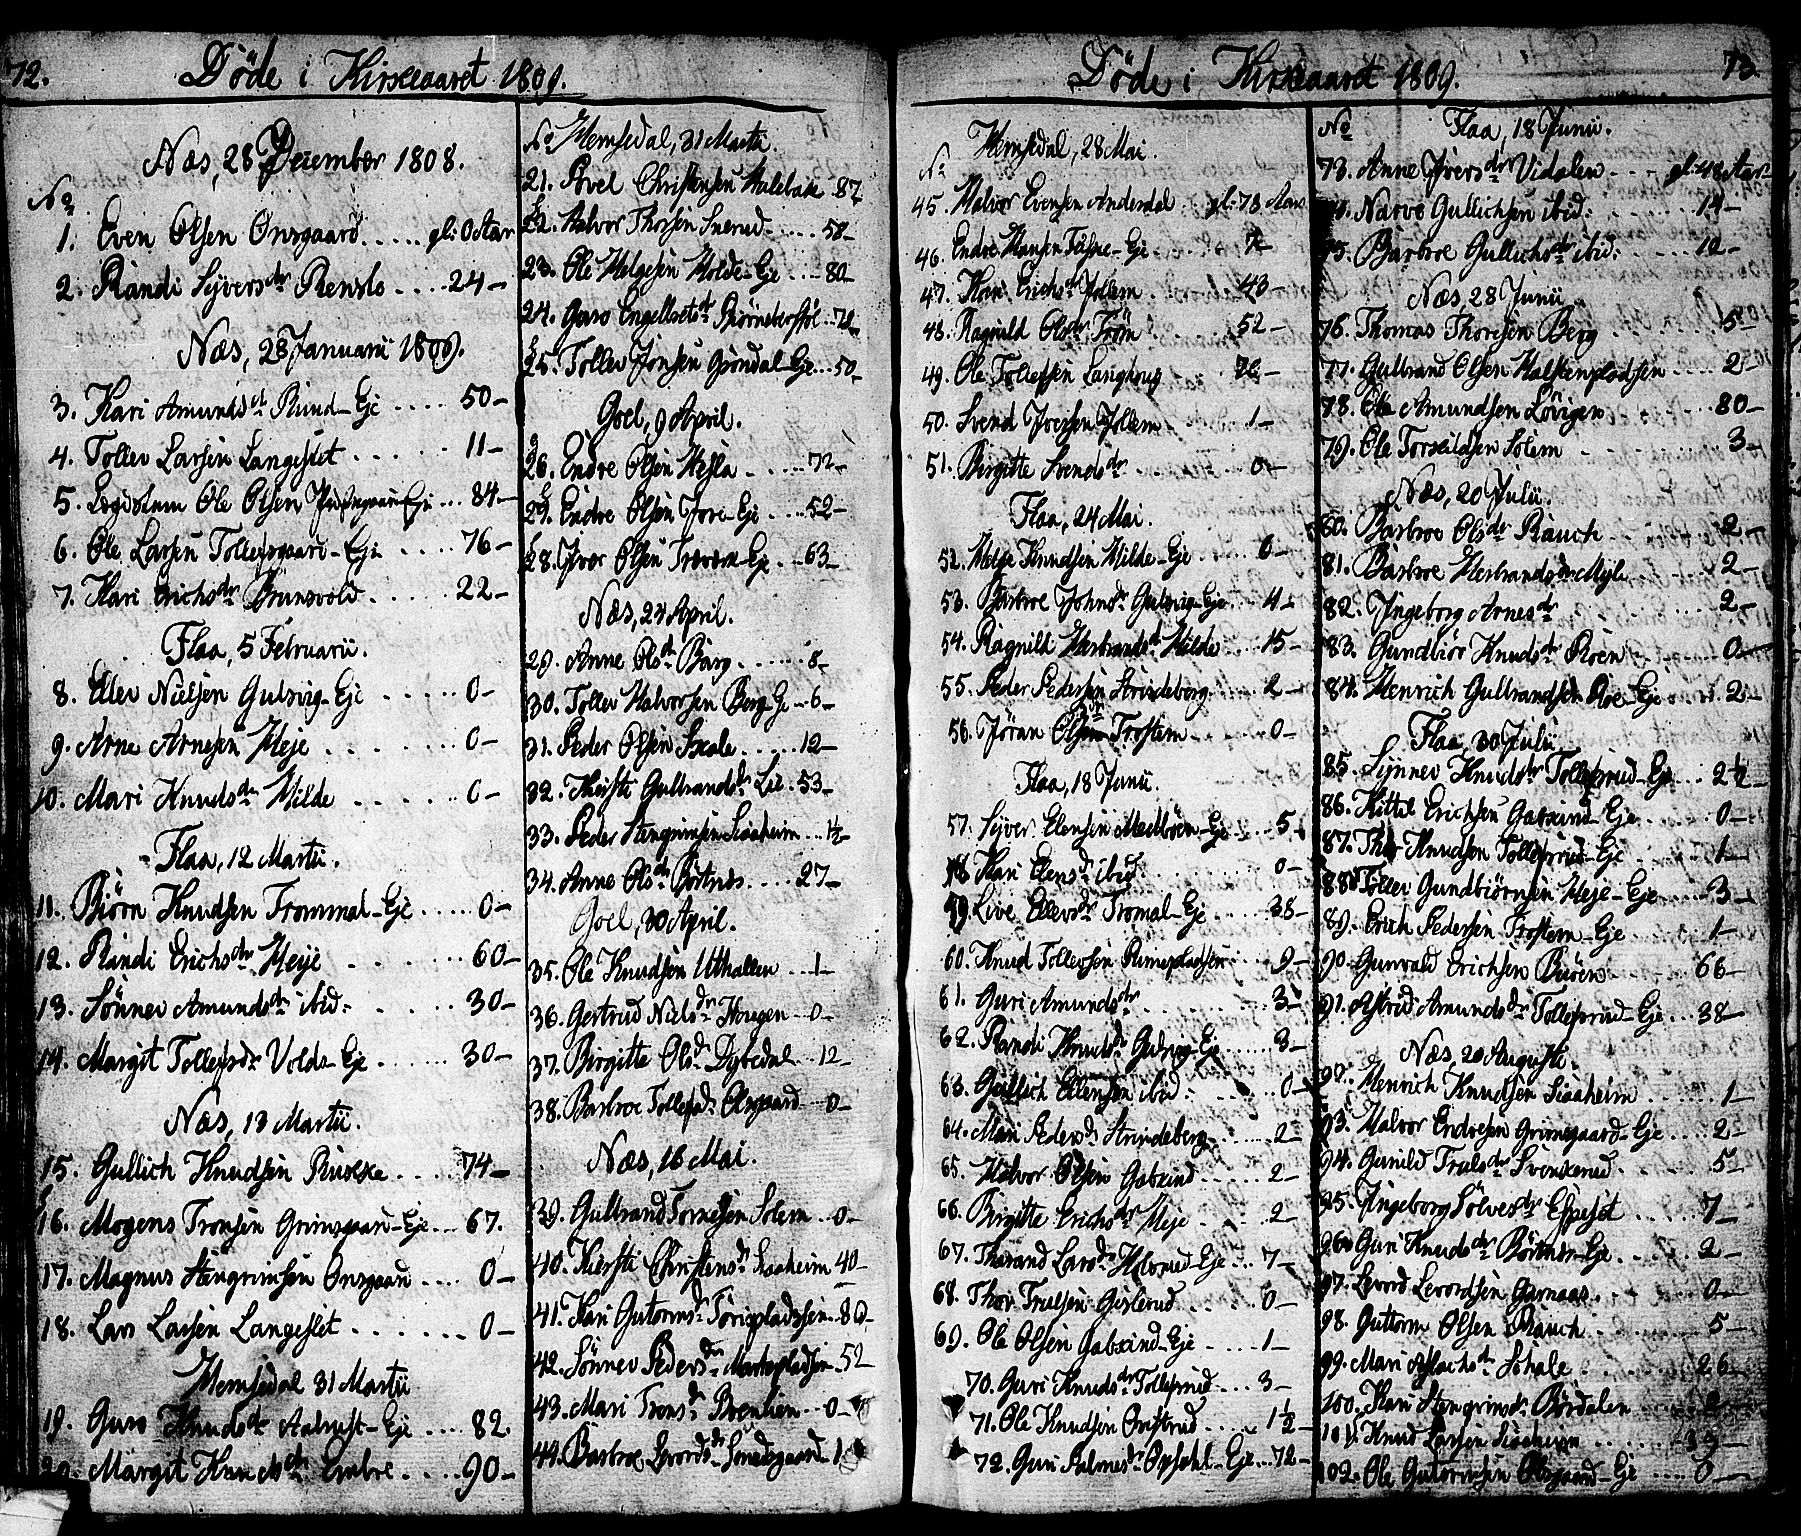 72.
Døde i Kirkeaaret 1809.
Næs, 28 December 1808.
No
1. Even Olsen Onsgaard ..... gl: 0 Aar
2. Randi Syversdr Renslo .... 24 -
Næs, 28 Januarii 1809.
3. Kari Amundsdr Rund-Eje .... 50 -
4. Tollev Larsen Langeslet ..... 11 -
5. Lægdslem Ole Olsen ... 84 -
6. Ole Larsen Tollefsgaard-Eje .... 76 -
7. Kari Erichsdr Brunsvold .... 22 -
Flaa, 5 Februarii.
8. Eller Nielsen Gulsvig-Eje ..... 0 -
9. Arne Arnesen Heje ..... 0 -
10. Mari Knudsdr Hilde ..... 0 -
Flaa, 12 Martii.
11. Biørn Knudsen Trommal-Eje ..... 0 -
12. Randi Erichsdr Heje .... 60 -
13. Sønnev Amundsdr ibid: .... 30 -
14. Margit Tollefsdr Volds-Eje .... 30 -
Næs, 13 Martii.
15. Gullich Knudsen Rukke .... 74 -
16. Mogens Tronsen Grimsgaard-Eje .. 67.
17. Magnus Stengrimsen Onsgaard .... 0 -
18. Lars Larsen Langeslet ....... 0 -
Hemsedal 31 Martii
19. Guro Knudsdr Aalrust-Eje .... 82.
20. Margit Knudsdr Embre .... 90 -
No Hemsedal, 31 Martii.
21. Povel Christensen Hulebak 87
22. Halvor Thorsen Snerud ..... 58 -
23. Ole Helgesen Holde-Eje .... 80 -
24. Guro Engelbretsdr ...
25. Tollev Jonsen Grøndal-Eje ... 50 -
Goel, 9 April.
26. Endre Olsen Hesla ..... 72 -
27. Endre Olsen Jore-Eje .... 52 -
28. Iver Olsen ... Eje ... 63 -
Næs, 23 April.
29. Anne Olsdr Berg ...... 8 -
30. Tollev Halvorsen Berg-Eje .. 6 -
31. Peder Olsen Skale ...... 12 -
32. Kiersti Gulbrandsdr Lie . 53 -
33. Peder Stengrimsen Siaaheim ... 1½ -
34. Anne Olsdr Børtnes .... 27 -
Goel, 30 April.
35. Ole Knudsen Uthallen ... 1 -
36. Gertrud Nielsdr Hougen .. 0 -
37. Birgitte Olsdr Dybedal .. 12 -
38. Barbroe Tollefsdr Olsgaard .... 0 -
Næs, 16 Mai.
39. Gulbrand Tornesen Solem .. 0 -
40. Kiersti Christensdr Siaaheim 40 -
41. Kari Gutormsdr ... 80 -
42. Sønnev Pedersdr Martepladsen 52 -
43. Mari Tronsdr Brenlien .... 0 -
44. Barbroe Levordsdr ... 1
Døde i Kirkeaaret 1809.
73.
Hemsedal, 28 Mai.
No
45. Halvor Evensen Anderdal .. gl: 73 Aar
46. Endre Hansen ... Eje
47. Kari Erichsdr Jollem .... 43 -
48. Ragnild Olsdr Trøm .... 52 -
49. Ole Tollefsen Langhoug
50. Svend Iversen Jollem ..... 1 -
51. Birgitte Svendsdr ....... 0 -
Flaa, 24 Mai.
52. Helge Knudsen Hilde-Eje .... 0 -
53. Barbroe Johnsdr Gulsvig-Eje ... 4 -
54. Ragnild Herbrandsdr Hilde .... 15 -
55. Peder Pedersen Strindeberg ..... 2 -
56. Jøran Olsdr Trostem ..... 0 -
Flaa, 18 Junii.
57. Syver Elensen Medbøen-Eje ... 5 -
58. Kari Elensdr ibid: ....... 0 -
59. Live Ellevsdr Tromal-Eje ..... 38 -
60. Knud Tollefsen Rimepladsen .... 9 -
61. Guri Amundsdr ...... 3 -
62. Randi Knudsdr Gulsvig-Eje ..... 3 -
63. Gullich Ellensen ibid: ...... 0 -
64. Mari Pedersdr Strindeberg ..... 2 -
65. Halvor Olsen Gabkind ..... 2 -
66. Birgitte Erichsdr Heje ...... 2 -
67. Thorand Larsdr ... Eje .... 7 -
68. Thor Trulsen Gislerud ..... 0 -
69. Ole Olsen Gabkind-Eje ..... 1 -
70. Guri Knudsdr Tollefsrud ... 3 -
71. Ole Knudsen ... 1½ -
72. Guri Palmesdr Opsahl-Eje ... 72 -
No Flaa, 18 Junii.
73. Anne Iversdr Vidalen .... gl: 48 Aar
74. Narve Gullichsen ibid. ..... 14 -
75. Barbroe Gullichsdr ibid: ...... 10 -
Næs, 28 Junii
76. Thomas Thoresen Berg ..... 5 -
77. Gulbrand Olsen Halstenpladsen ..... 2 -
78. Ole Amundsen Løvigen ...... 80 -
79. Ole Torkildsen Solem ........ 3 -
Næs, 20 Julii.
80. Barbroe Olsdr Rauch ...... 2 -
81. Barbroe Herbrandsdr Myli ..... 2 -
82. Ingeborg Arnesdr ...... 2 -
83. Gundbiør Knudsdr Roen ...... 0 -
84. Henrich Gulbrandsen Roe-Eje .... 2 -
Flaa, 30 Julii
85. Synnev Knudsdr Tollefsrud-Eje ... 2½ -
86. Kittel Erichsen Gabkind-Eje ..... 0 -
87. Thor Knudsen Tollefsrud-Eje .... 1 -
88. Tollev Gundbiørnsen Heje-Eje ..... 3 -
89. Erich Pedersen Trostem-Eje ..... 1 -
90. Gunvald Erichsen Buøen ..... 66 -
91. Astrid Amundsdr Tollefsrud-Eje ... 38 -
Næs, 20 Augusti.
92. Henrich Knudsen Siaaheim ..... 1 -
93. Halvor Endresen Grimsgaard-Eje .... 2 -
94. Gunild Trulsdr Svenkerud ..... 5 -
95. Ingeborg Sølvesdr Espeset ...... 7 -
96. Guri Knudsdr Børtnes-Eje ...... 2 -
97. Levord Levordsen Garnaas ...... 0 -
98. Guttorm Olsen Rauch ....... 5 -
99. Mari Aslachsdr Skale ...... 26 -
100. Kari Stengrimsdr Børdalen
101. Knud Larsen Siaaheim
102. Ole Gutormsen Olsgaard-Eje .... 0 -